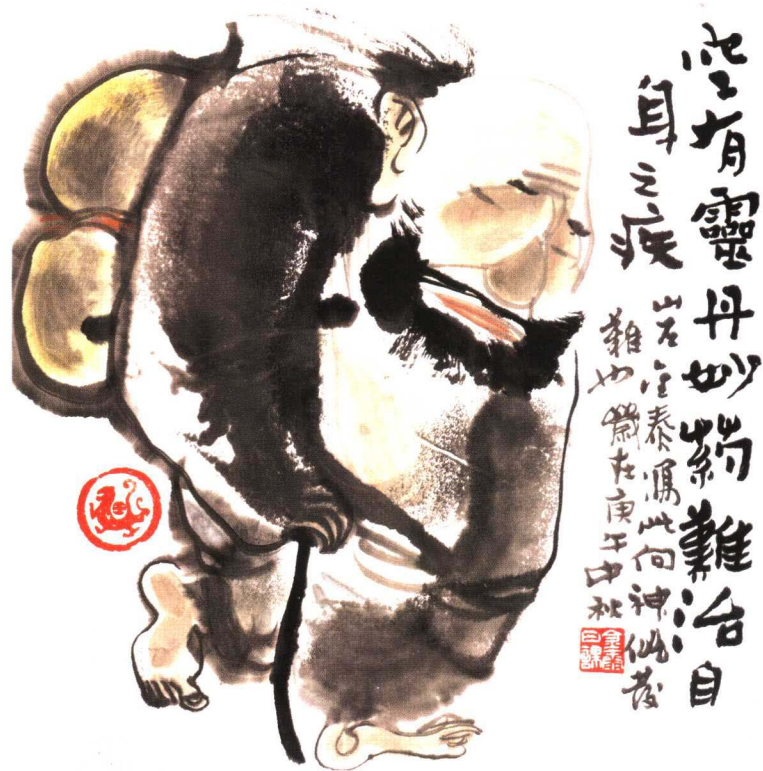 空有靈丹妙药難治自
身之疾
岩金泰寫此向神仙发
難也歲在庚午中秋